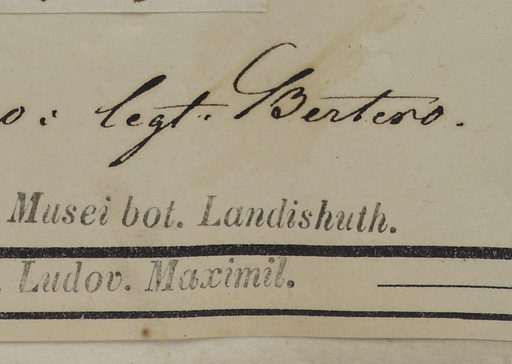 o: legt. Bertero.
Musei bot. Landishuth.
. Ludov. Maximil.